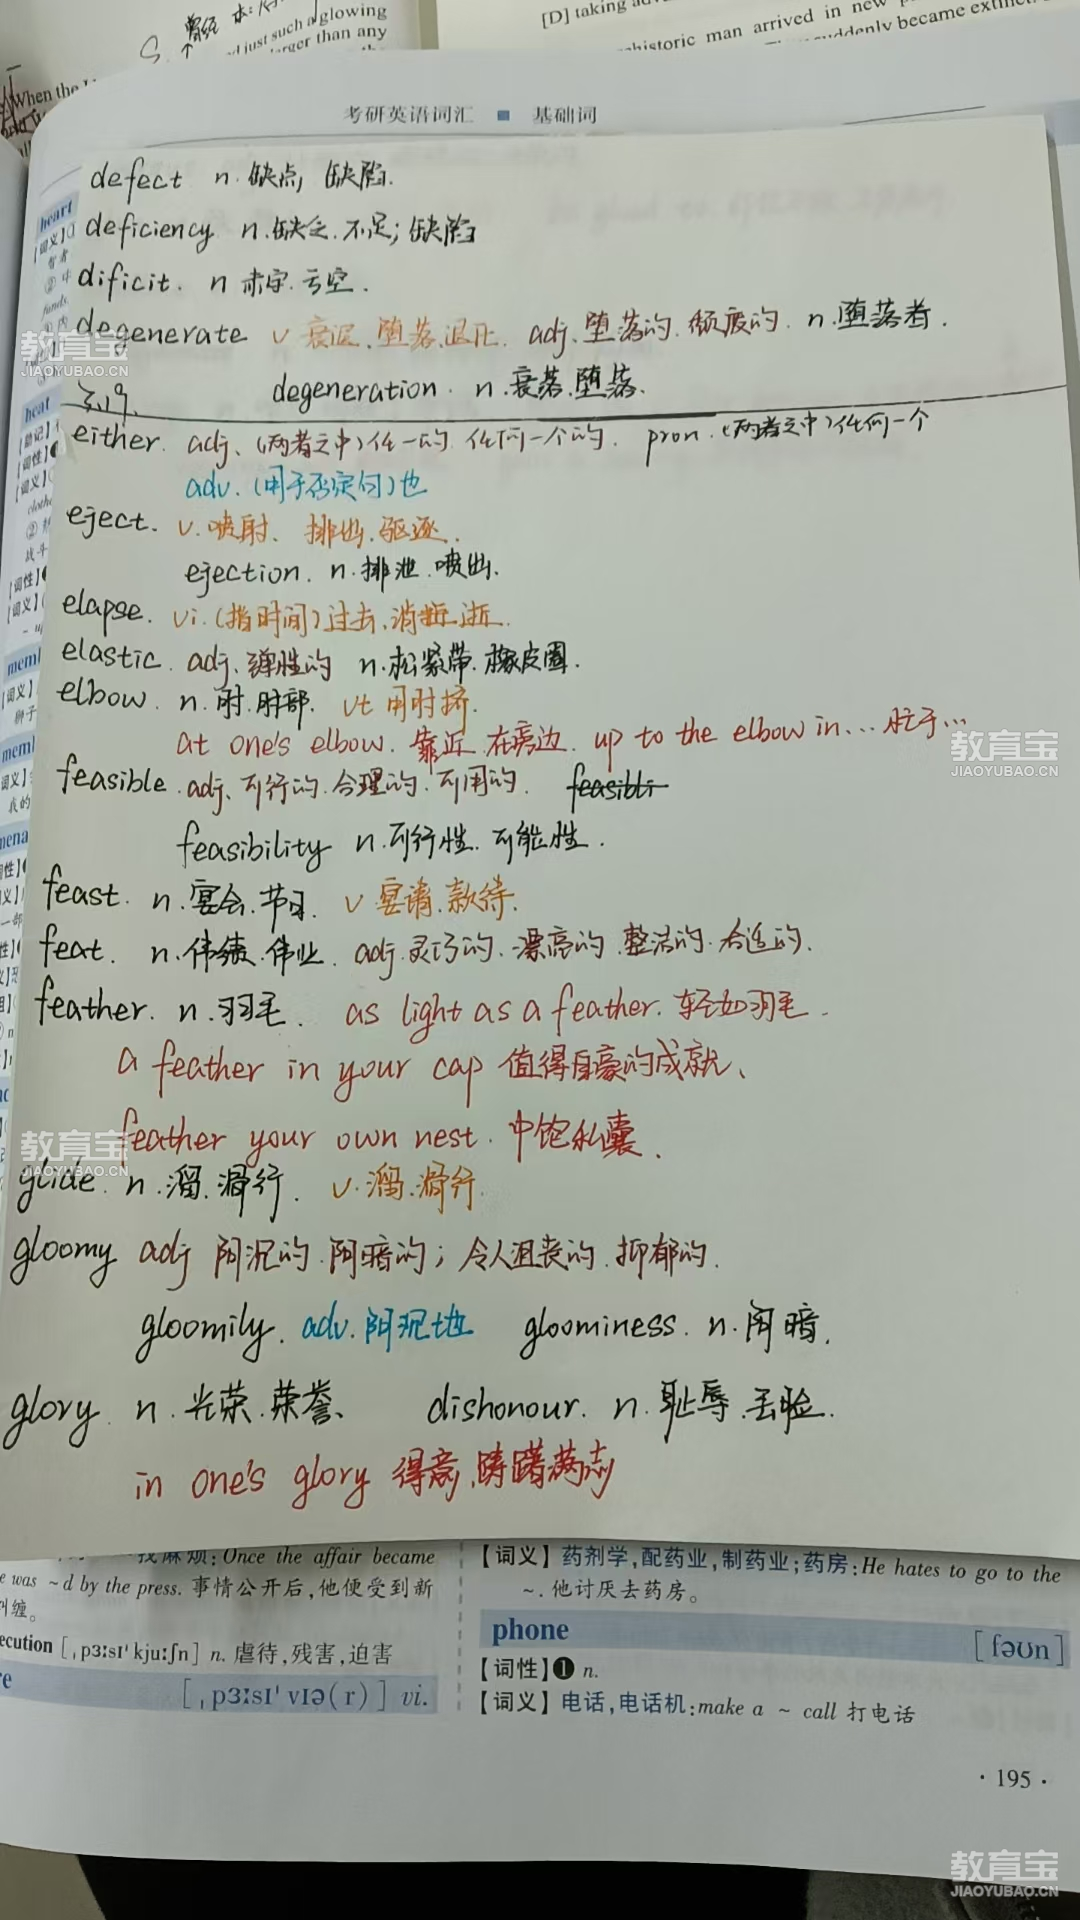 [D] taking
just such a glowing
larger than any
When the
prehistoric man arrived in new
suddenly became extinct.
考研英语词汇 ■ 基础词
defect n.缺点,缺陷.
deficiency n.缺乏.不足;缺陷
dificit. n 赤字.亏空.
degenerate v 衰退.堕落.退化. adj.堕落的.颓废的. n.堕落者.
degeneration. n.衰落.堕落.
3.19.
either. adj.(两者之中)任一的.任何一个的. pron.(两者之中)任何一个
adv.(用于否定句)也
eject. v.喷射、排出.驱逐.
ejection. n.排泄.喷出.
elapse. vi.(指时间)过去.消逝.逝.
elastic. adj.弹性的 n.松紧带.橡皮圈.
elbow. n.肘.肘部. vt 用肘挤.
at one's elbow. 靠近.在旁边. up to the elbow in...忙于...
feasible.adj.可行的.合理的.可用的. feasibli
feasibility n.可行性.可能性.
feast. n.宴会.节日. v.宴请.款待.
feat. n.伟绩.伟业. adj.灵巧的.漂亮的.整洁的.合适的.
feather. n.羽毛. as light as a feather.轻如羽毛.
a feather in your cap 值得自豪的成就、
feather your own nest.中饱私囊.
glide. n.溜.滑行. v.溜.滑行.
gloomy adj 阴沉的.阴暗的;令人沮丧的.抑郁的.
gloomily. adv.阴沉地 gloominess. n.阴暗.
glory. n.光荣.荣誉、 dishonour. n.耻辱.丢脸.
in one's glory 得意,踌躇满志
找麻烦:Once the affair became
e was ~d by the press. 事情公开后,他便受到新
纠缠。
ecution [ˌpɜːsɪˈkjuːʃn] n. 虐待,残害,迫害
re [ˌpɜːsɪˈvɪə(r)] vi.
【词义】药剂学,配药业,制药业;药房:He hates to go to the
~. 他讨厌去药房。
phone [fəʊn]
【词性】❶ n.
【词义】电话,电话机:make a ~ call 打电话
· 195 ·
教育宝
JIAOYUBAO.CN
教育宝
JIAOYUBAO.CN
教育宝
JIAOYUBAO.CN
教育宝
JIAOYUBAO.CN